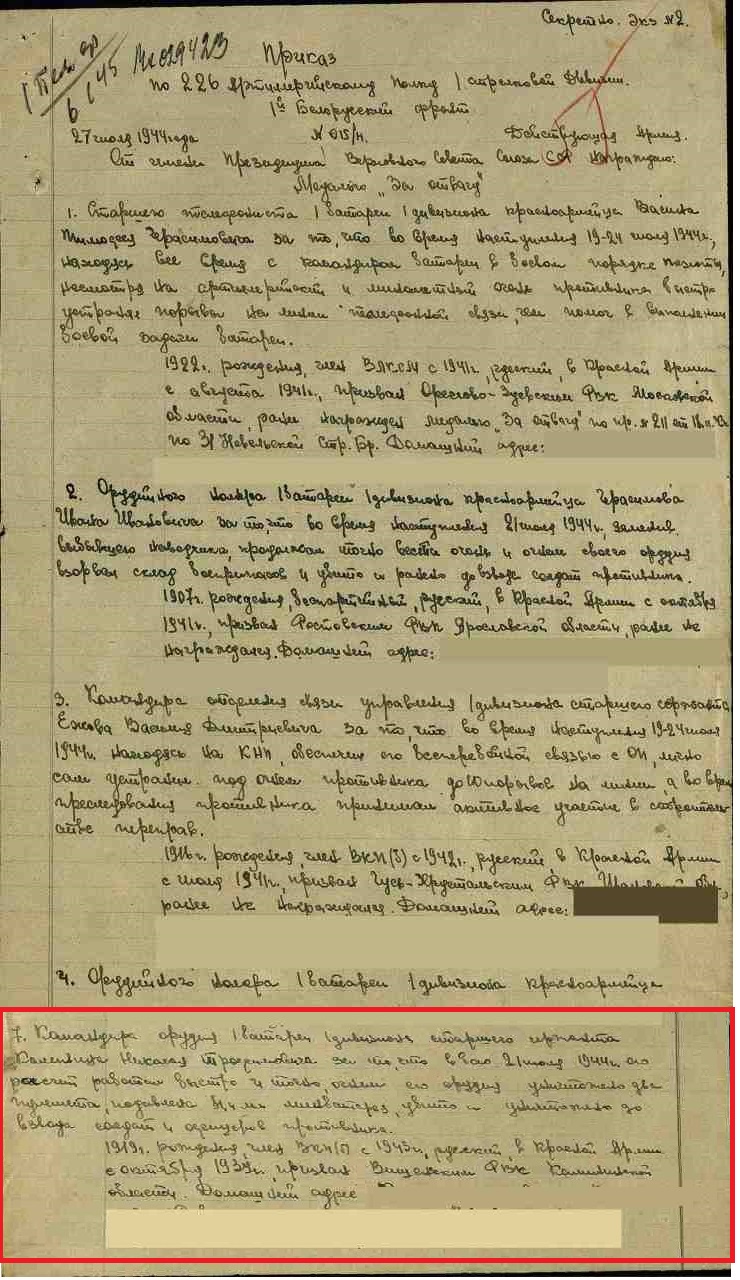 Секретно. Экз №2.
Приказ
по 226 Артиллерийскому полку 1 стрелковой Дивизии.
1й Белорусский фронт
27 июля 1944 года № 015/н. Действующая Армия.
От имени Президиума Верховного Совета Союза ССР награждаю:
Медалью „За отвагу"
1. Старшего телефониста 1 батареи 1 дивизиона красноармейца
Герасимовича за то, что во время наступления 19-24 июля 1944г.,
находясь все время с командиром батареи в боевом порядке пехоты,
несмотря на артиллерийский и минометный огонь противника быстро
устранял порывы на линии телефонной связи, чем помог в выполнении
боевой задачи батареи.
1922г. рождения, член ВЛКСМ с 1941г., русский, в Красной Армии
с августа 1941г., призван Орехово-Зуевским РВК Московской
области, ранее награжден медалью „За отвагу" по пр. № 211 от
по 31 Невельской Стр. Бр. Домашний адрес:
2. Орудийного номера 1 батареи 1 дивизиона красноармейца Герасимова
Ивана Ивановича за то, что во время наступления 21 июля 1944г., заменив
выбывшего наводчика, продолжал точно вести огонь и огнем своего орудия
взорвал склад боеприпасов и убито и ранено до взвода солдат противника.
1907г. рождения, беспартийный, русский, в Красной Армии с октября
1941г., призван Ростовским РВК Ярославской области, ранее не
награждался. Домашний адрес:
3. Командира отделения связи управления 1 дивизиона старшего сержанта
Ежова Василия Дмитриевича за то, что во время наступления 19-24 июля
1944г. находясь на КНП, обеспечил его бесперебойной связью с ОП, лично
сам устранил под огнем противника до 10 порывов на линии, а во время
преследования противника принимал активное участие в
переправ.
1916г. рождения, член ВКП(б) с 1942г., русский, в Красной Армии
с июля 1941г., призван Гусь-Хрустальским РВК Ивановской обл.,
ранее не награждался. Домашний адрес:
4. Орудийного номера 1 батареи 1 дивизиона красноармейца
7. Командира орудия 1 батареи 1 дивизиона старшего сержанта
Николая Трофимовича за то, что в бою 21 июля 1944г. его
расчет работал быстро и точно, огнем его орудия уничтожено два
пулемета, подавлена минбатарея, убито и уничтожено до
взвода солдат и офицеров противника.
1919г. рождения, член ВКП/б с 1943г., русский, в Красной Армии
с октября 1939г., призван РВК Калининской
области. Домашний адрес